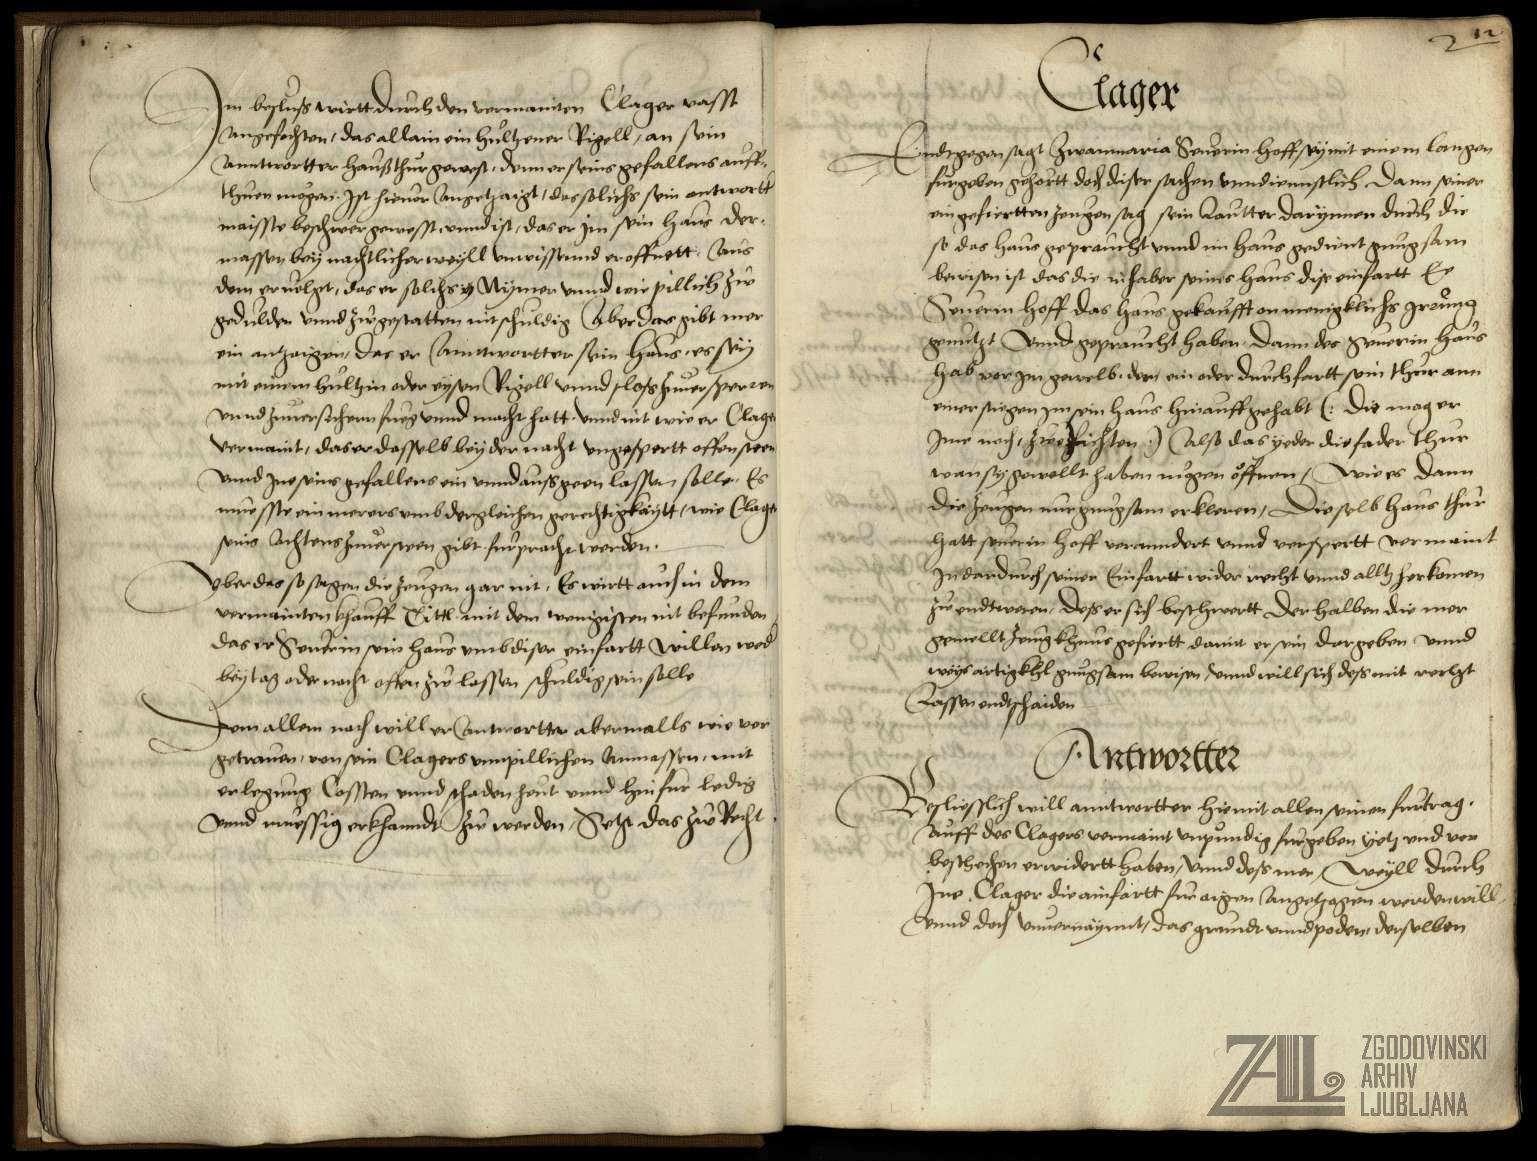 Im besluß wirtt durch den vermainten Clager vasst
Angefochten, das allain ein hultzener Rigell, an sein
Anntwortter haußthur gewest, denn er seins gefallens auff
thuen mogen. Ist hievor Angetzaigt, das solichs sein antwortt
maisste beschwer gewesst unnd ist, das er Im sein haus der
massen bey nachtlicher weyll unwissennd eroffnett. Aus
dem ervolgt, das er solchs Nymer unnd wie pillich zw
gedulden unnd zw gestatten nit schuldig Aber das gibt mer
ein antzaigen, das er Anntwortter sein haus, es sey
mit einem hultzin oder eysen Rigell unnd schloss zuversperren
unnd zuversichern fueg unnd macht hatt. unnd nit wie er Clager
vermaint, das er dasselb bey der nacht ungespertt offen steen
unnd Ine seins gefallens ein unnd auss geen lassen solle. Es
muesste ein merers umb dergleichen gerechtigkaytt, wie Clager
seins Achtens zuversteen gibt furpracht werden.
Uber das so sagen die zeugen gar nit. Es wirtt auch in dem
vermainten khauff Titl mit dem wenigisten nit befunden
das er Severin sein haus umb diser einfartt willen wed
bey tag oder nacht offen zw lassen schuldig sein solle
Dem allem nach will er Antwortter abermalls wie vor
getrauen, von sein Clagers unnpillichen Anmassen, mit
erlegung Cossten unnd schaden heut unnd hinfur ledig
unnd muessig erkhanndt zw werden, Setzt das zw Recht
12
Clager
Endtgegen sagt Zwannmaria Severin hoff, sey mit einem langen
furgeben gehortt doch diser sachen unndiennstlich Dann seiner
eingefuertten zeugen sag sein Lautter darynnen durch die
so das haus gepraucht unnd im haus gedient gnugsam
bewisen ist das die inhaber seines haus dise einfartt Ee
Severin hoff das haus gekaufft on menigklichs Irrung
genutzt Unnd gepraucht haben. Dann des Severin haus
hab vor Im gewelb, der ein oder durchfartt sein thur ann
einer stiegen Im sein haus hinauff gehabt (: Die mag er
Ime noch, zuerichten :) Also das yeder die fader thur
wan sy gewellt haben mugen offnen, Wie es dann
die zeugen nur gnugsam erkleren, Dieselb haus thur
hatt Severin hoff verenndert unnd verspertt vermaint
In dardurch seiner Einfartt wider recht unnd allts herkomen
zw endtweren, Deß er sich beschwertt Derhalben die mer
gemellt zeugkhnus gefuertt damit er sein dargeben unnd
weysartigkhl gnugsam bewisen, unnd will sich deß mit recht
Lassen endtschaiden
Antwortter
Besliesslich will anntwortter hiemit allen seinen furtrag.
Auff des Clagers vermaint unpundig furgeben yetz und vor
beschechen erwidertt haben, Unnd deß mer, Weyll durch
Ine Clager die ainfartt fur aigen Angetzogen werden will
Unnd doch unvernaynnt, das grundt unnd poden, derselben
ZAL
ZGODOVINSKI
ARHIV
LJUBLJANA